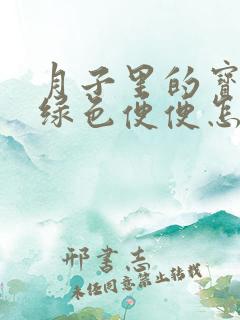 月子里的宝
绿色便便怎
邢书志
未经同意禁止转载